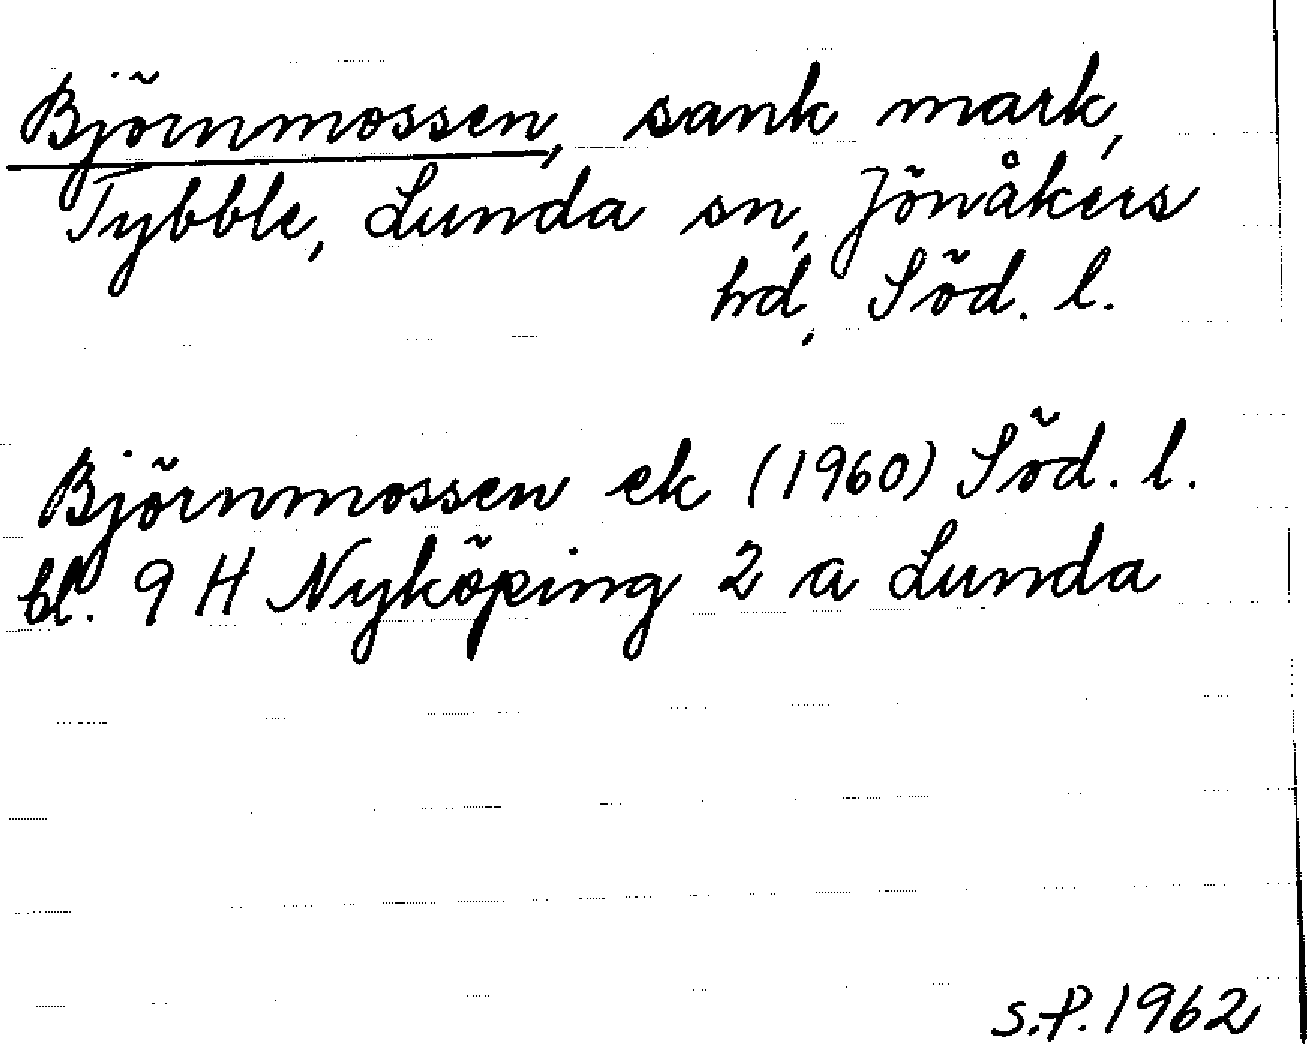 Björnmossen, sank mark,
Tybble, Lunda sn, Jönåkers
hd, Söd. l.
Björnmossen ek (1960) Söd. l.
bl. 9 H Nyköping 2 a Lunda
S.P. 1962